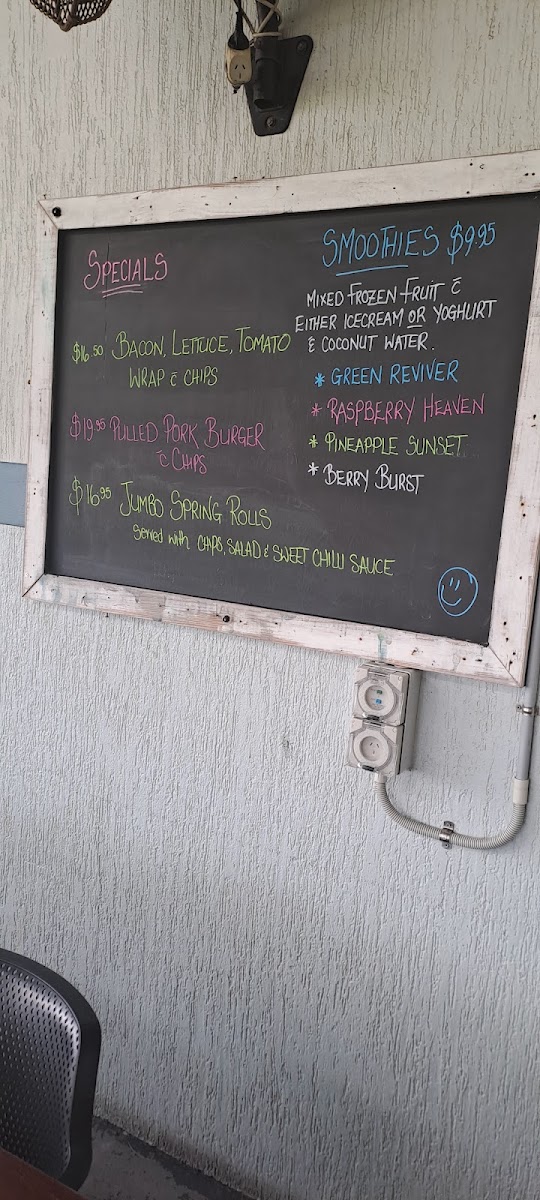 SPECIALS
$16.50 BACON, LETTUCE, TOMATO
WRAP c̄ CHIPS
$19.95 PULLED PORK BURGER
c̄ CHIPS
$16.95 JUMBO SPRING ROLLS
Served with CHIPS, SALAD & SWEET CHILLI SAUCE
SMOOTHIES $9.95
MIXED FROZEN FRUIT c̄
EITHER ICECREAM OR YOGHURT
& COCONUT WATER.
* GREEN REVIVER
* RASPBERRY HEAVEN
* PINEAPPLE SUNSET
* BERRY BURST